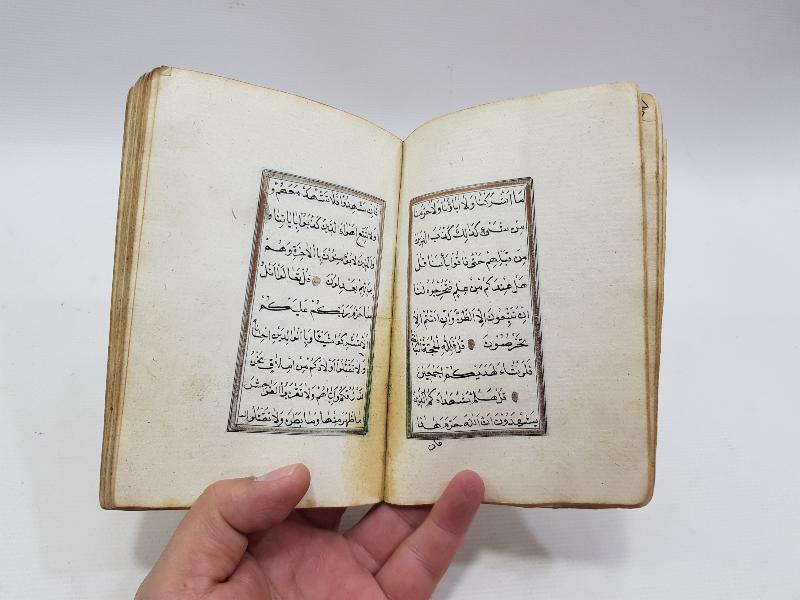 ما اشركنا ولا اباؤنا ولا حرمنا
من شيء كذلك كذب الذين
من قبلهم حتى ذاقوا بأسنا قل
هل عندكم من علم فتخرجوه لنا
ان تتبعون الا الظن وان انتم الا
تخرصون قل فلله الحجة البالغة
فلو شاء لهديكم اجمعين
قل هلم شهداءكم الذين
يشهدون ان الله حرم هذا
فان
فان شهدوا فلا تشهد معهم و
ولا تتبع اهواء الذين كذبوا باياتنا و
والذين لا يؤمنون بالاخرة وهم
بربهم يعدلون قل تعالوا اتل
ما حرم ربكم عليكم
الا تشركوا به شيئا وبالوالدين احسانا
ولا تقتلوا اولادكم من املاق نحن
نرزقكم واياهم ولا تقربوا الفواحش
ما ظهر منها وما بطن ولا تقتلوا